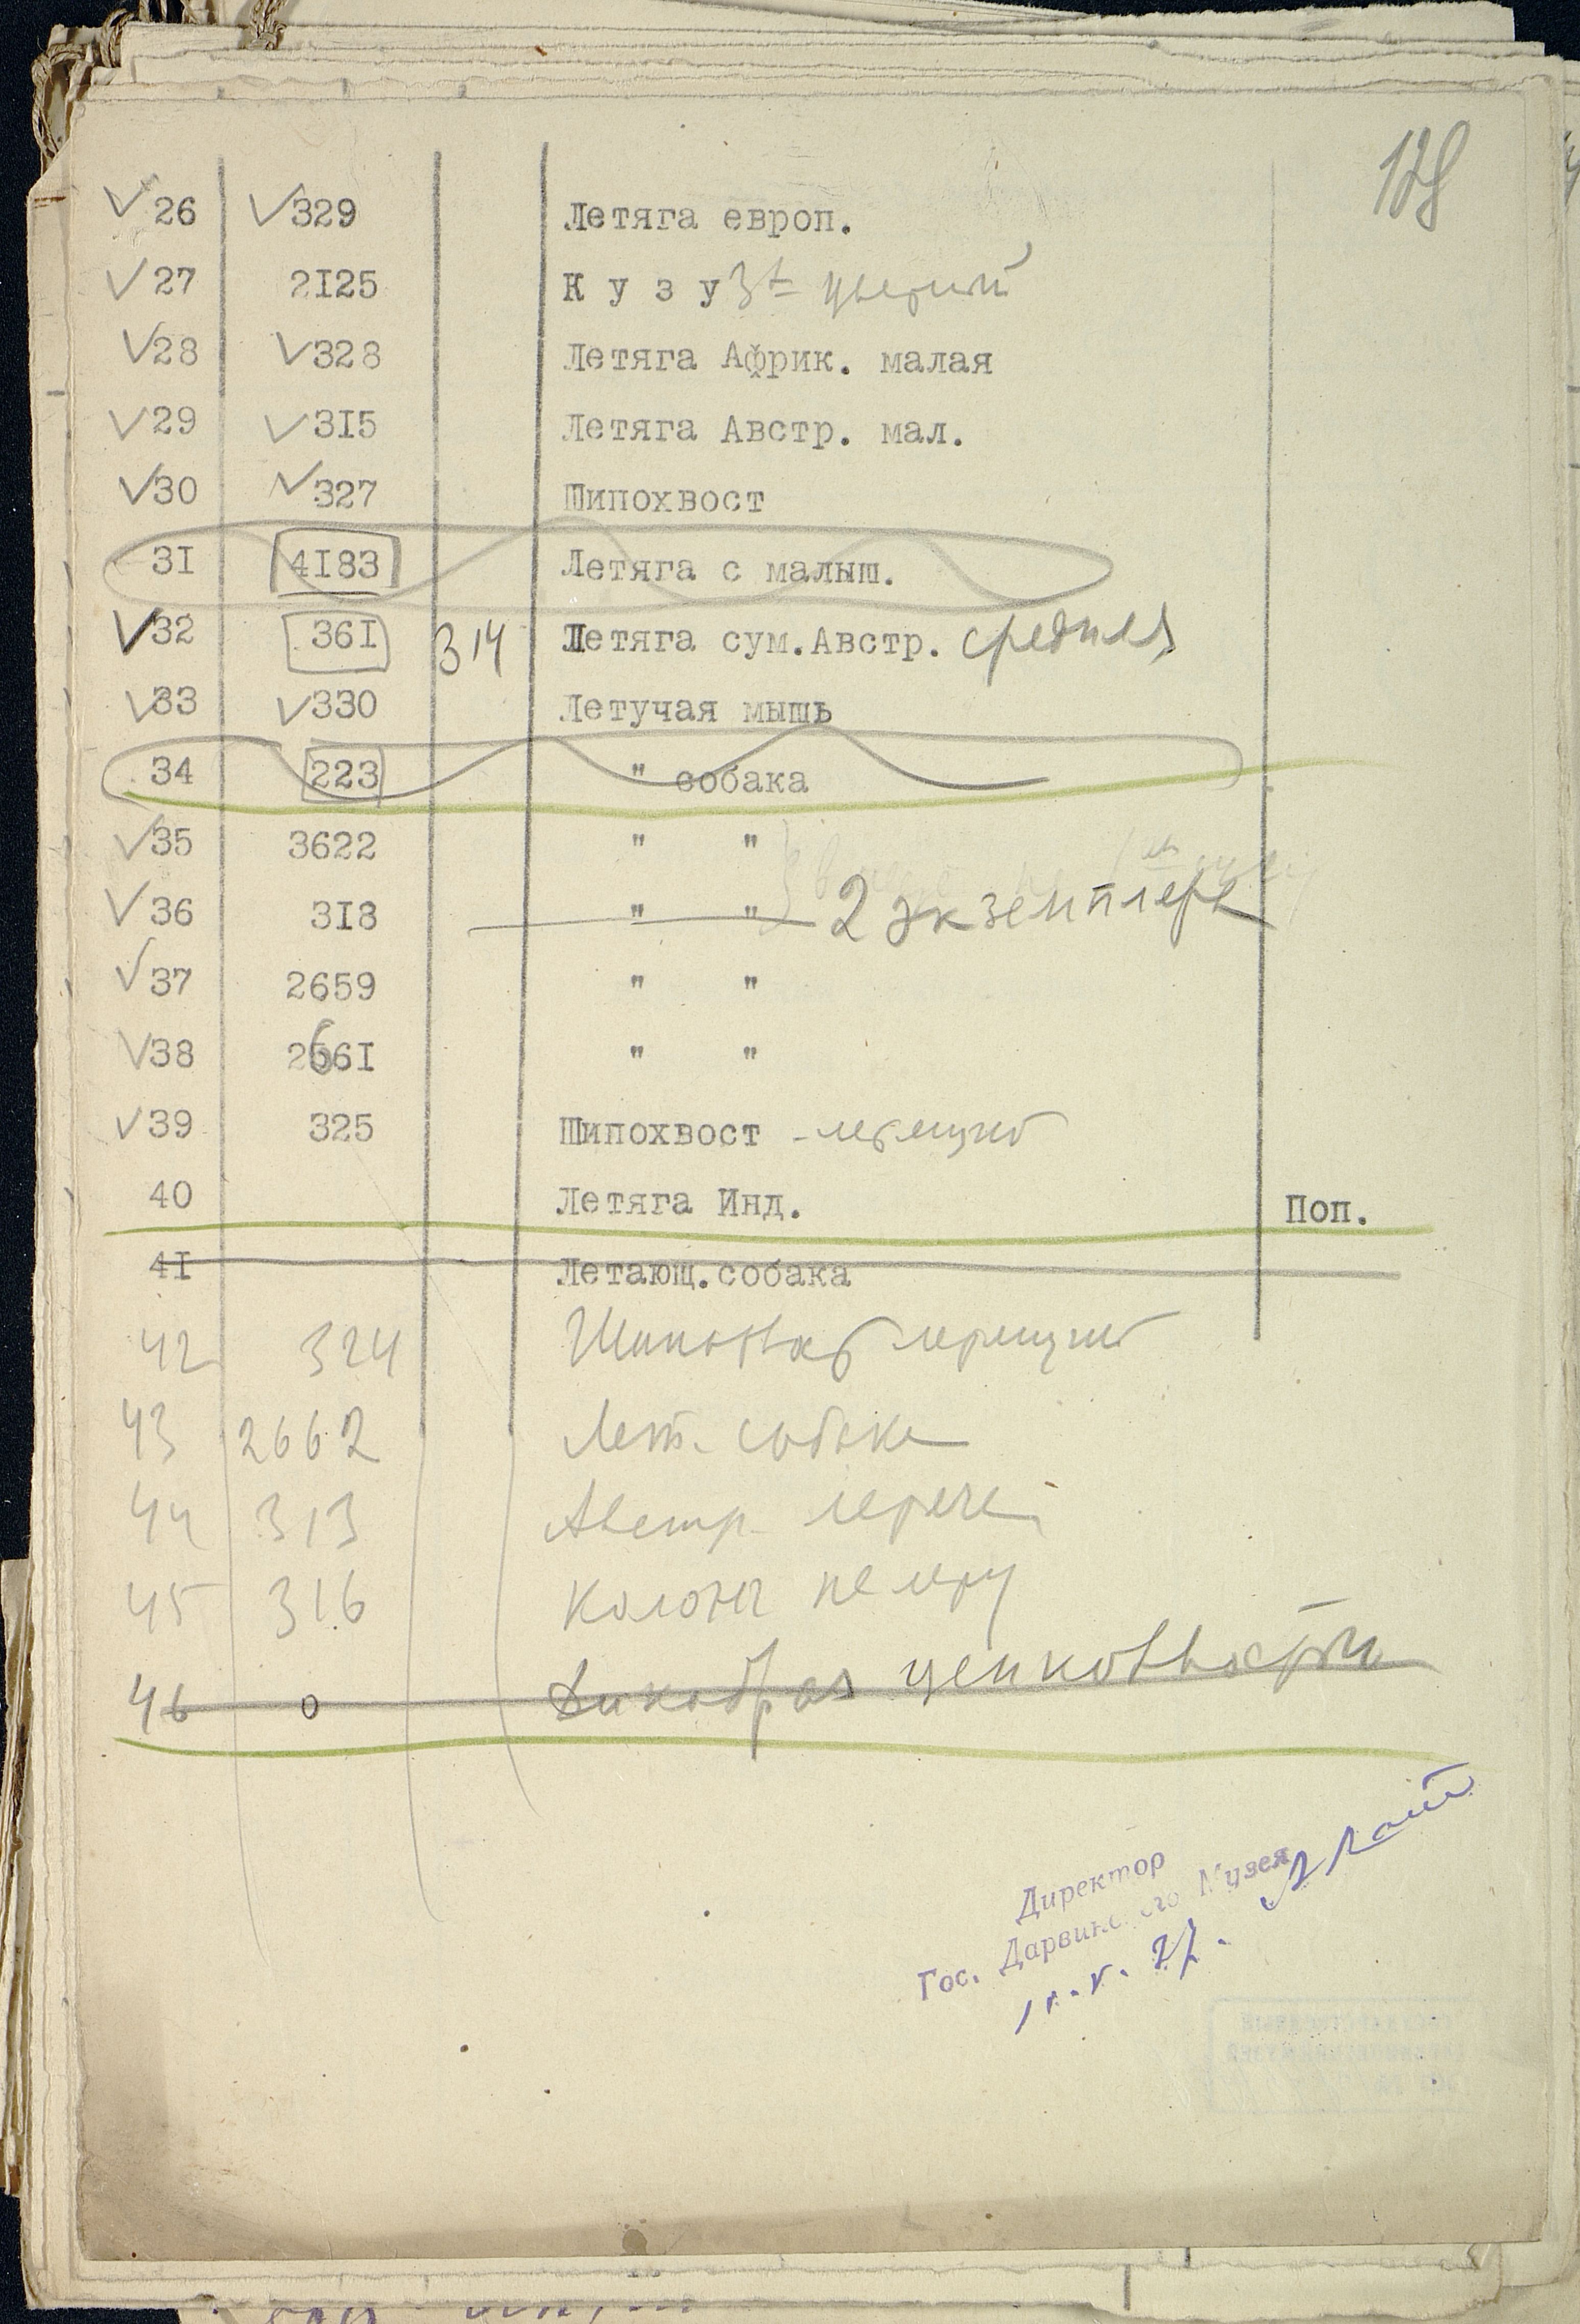 128
26 329 Летяга европ.
27 2125 К у з у
28 328 Летяга Африк. малая
29 315 Летяга Австр. мал.
30 327 Шипохвост
31 4183 Летяга с малыш.
32 361 314 Летяга сум.Австр. средняя
33 330 Летучая мышь
34 223 " собака
35 3622 " "
36 318 " " 2 экземпляра
37 2659 " "
38 2661 " "
39 325 Шипохвост
40 Летяга Инд. Поп.
41 Летающ.собака
42 324 Шипохвост
43 2662 Лет. собака
44 313 Австр.
45 316
46 0 Дикобраз цепкохвостый
Директор
Гос. Дарвинского Музея